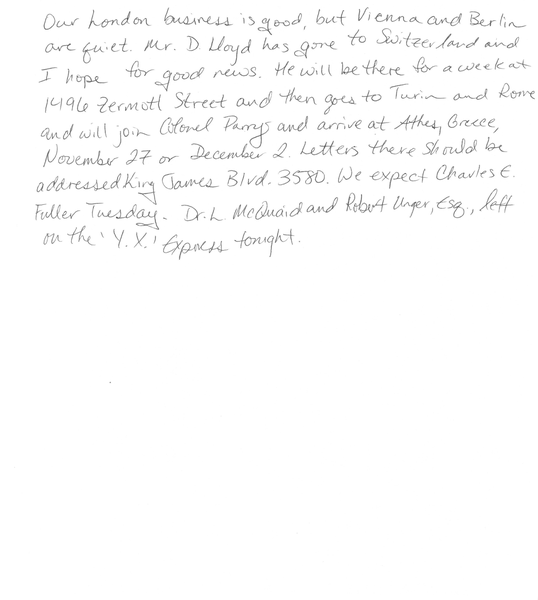 Our London business is good, but Vienna and Berlin
are quiet. Mr. D. Lloyd has gone to Switzerland and
I hope for good news. He will be there for a week at
1496 Zermott Street and then goes to Turin and Rome
and will join Colonel Parry and arrive at Athes, Greece,
November 27 or December 2. Letters there should be
addressed King James Blvd. 3580. We expect Charles E.
Fuller Tuesday. Dr. L McQuaid and Robert Unger, Esq., left
on the 'Y.X.' Express tonight.